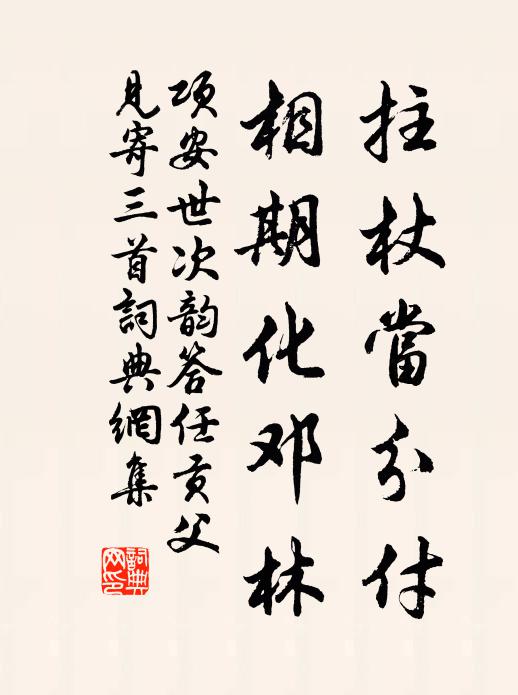 拄杖當分付
相期化邓林
项安世次韵答任贡父
見寄三首詞典網集
詞典網印